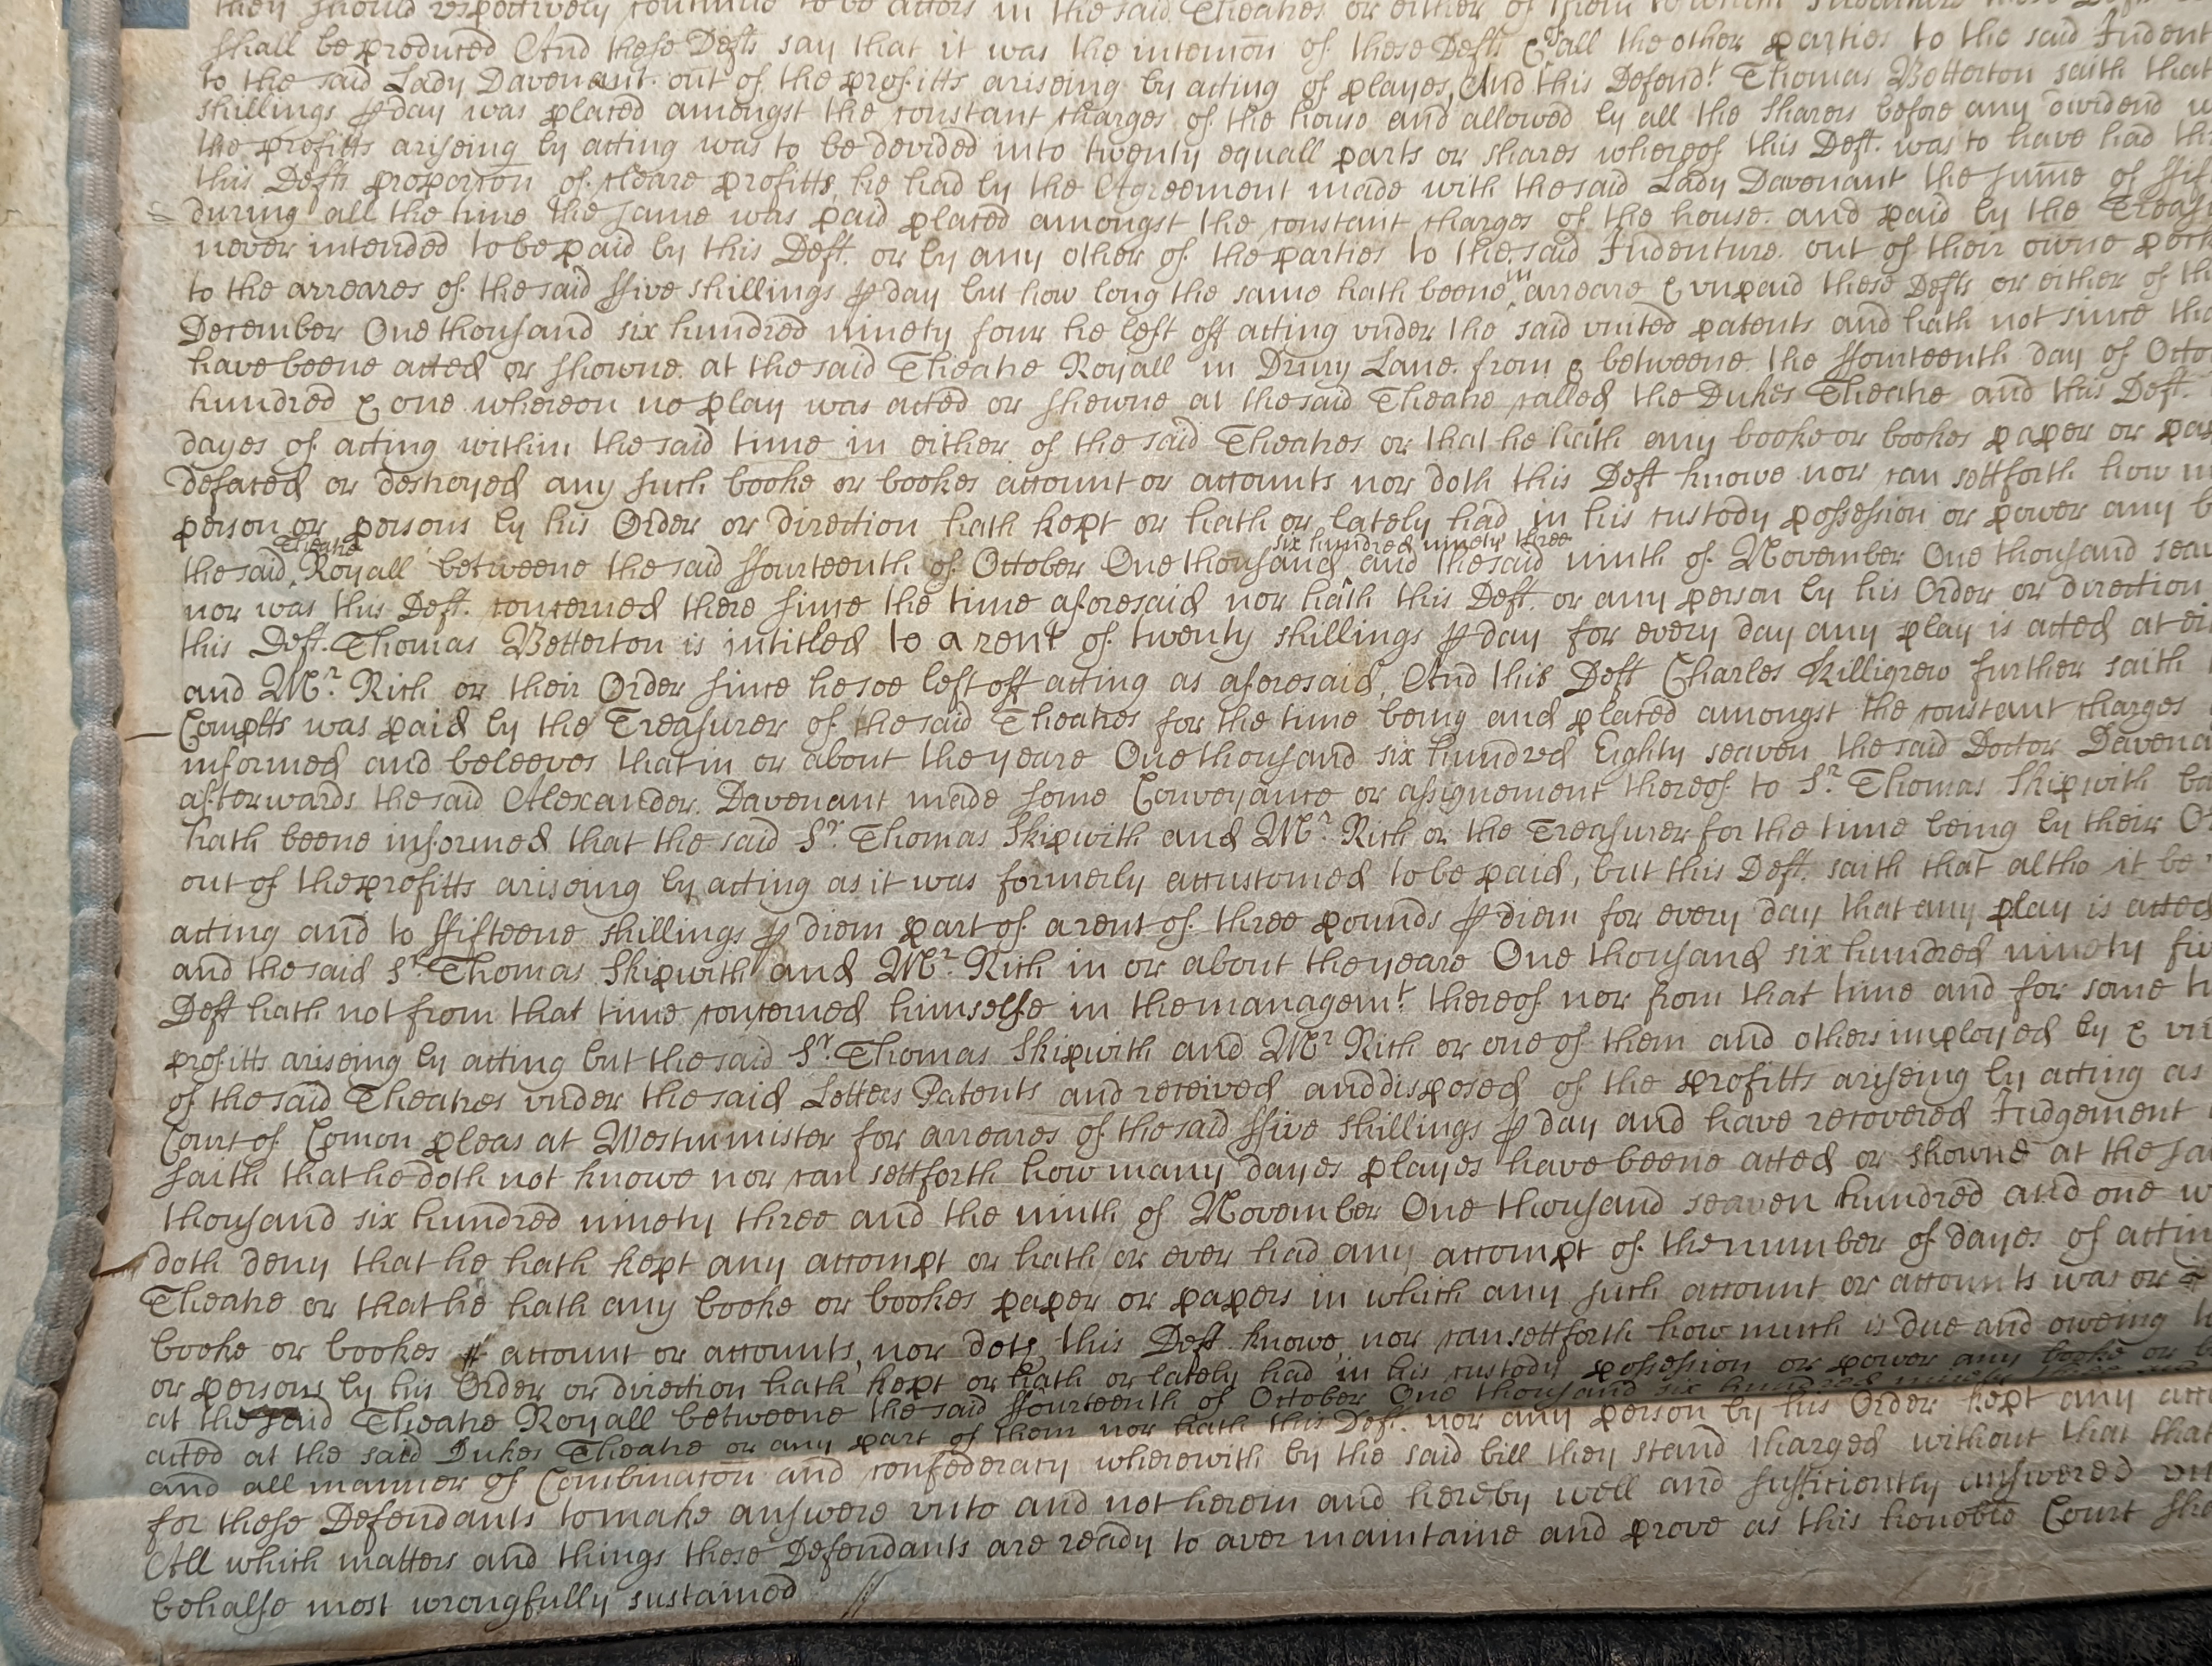 they should respectively continue to be actors in the said Theatres or either of them to which
shall be produced And these Defts say that it was the intencon of these Defts & all the other parties to the said Indent
to the said Lady Davenant out of the profitts ariseing by acting of playes, And this Defendt Thomas Betterton saith that
shillings p day was placed amongst the constant charges of the house and allowed by all the sharers before any dividend
the profitts ariseing by acting was to be devided into twenty equall parts or shares whereof this Deft. was to have had
this Defts proporcon of cleare profitts, he had by the Agreement made with the said Lady Davenant the sume of
during all the time the same was paid placed amongst the constant charges of the house. and paid by the Treas
never intended to be paid by this Deft. or by any other of the parties to the said Indenture out of their owne
to the arreares of the said ffive shillings p day but how long the same hath beene in arreare & unpaid these Defts or either of
December One thousand six hundred ninety four he left off acting under the said united patents and hath not since
have beene acted or showne at the said Theatre Royall in Drury Lane from & betweene the ffourteenth day of Octo
hundred & one whereon no play was acted or shewne at the said Theatre called the Dukes Theatre and this Deft.
dayes of acting within the said time in either of the said Theatres or that he hath any booke or bookes paper or pa
defaced or destroyed any such booke or bookes account or accounts nor doth this Deft knowe nor can settforth how
person or persons by his Order or direction hath kept or hath or lately had in his custody possession or power any
the said Theatre Royall betweene the said ffourteenth of October One thousand six hundred ninety three and the said ninth of November One thousand sea
nor was this Deft. concerned there since the time aforesaid nor hath this Deft. or any person by his Order or direction
this Deft. Thomas Betterton is intitled to a rent of twenty shillings p day for every day any play is acted at
and Mr. Rich or their Order since he soe left off acting as aforesaid, And this Deft Charles Killigrew further saith
Complts was paid by the Treasurer of the said Theatres for the time being and placed amongst the constant charges
informed and beleeves that in or about the yeare One thousand six hundred Eighty seaven the said Doctor Davena
afterwards the said Alexander Davenant made some Conveyance or assignement thereof to Sr. Thomas Skipwith
hath beene informed that the said Sr. Thomas Skipwith and Mr. Rich or the Treasurer for the time being by their
out of the profitts ariseing by acting as it was formerly accustomed to be paid, but this Deft. saith that altho it be
acting and to ffifteene shillings p diem part of a rent of three pounds p diem for every day that any play is acted
and the said Sr. Thomas Skipwith and Mr. Rich in or about the yeare One thousand six hundred ninety
Deft hath not from that time concerned himselfe in the managemt. thereof nor from that time and for some
profitts ariseing by acting but the said Sr. Thomas Skipwith and Mr. Rich or one of them and others imployed by &
of the said Theatres under the said Letters Patents and received and disposed of the profitts ariseing by acting as
Court of Comon pleas at Westminister for arreares of the said ffive shillings p day and have recovered Judgement
saith that he doth not knowe nor can settforth how many dayes playes have beene acted or showne at the
thousand six hundred ninety three and the ninth of November One thousand seaven hundred and one
doth deny that he hath kept any accompt or hath or ever had any accompt of the number of dayes of
Theatre or that he hath any booke or bookes paper or papers in which any such account or accounts was or
booke or bookes account or accounts, nor doth this Deft. knowe, nor can settforth how much is due and oweing
or persons by his Order or direction hath kept or hath or lately had in his custody possession or power any booke or
at the said Theatre Royall betweene the said ffourteenth of October One thousand six hundred ninety
acted at the said Dukes Theatre or any part of them nor hath this Deft. nor any person by his Order kept any
and all manner of Combinacon and confederacy wherewith by the said bill they stand charged without that that
for these Defendants to make answere unto and not herein and hereby well and sufficiently answered
All which matters and things these Defendants are ready to aver maintaine and prove as this honoble Court
behalfe most wrongfully sustained